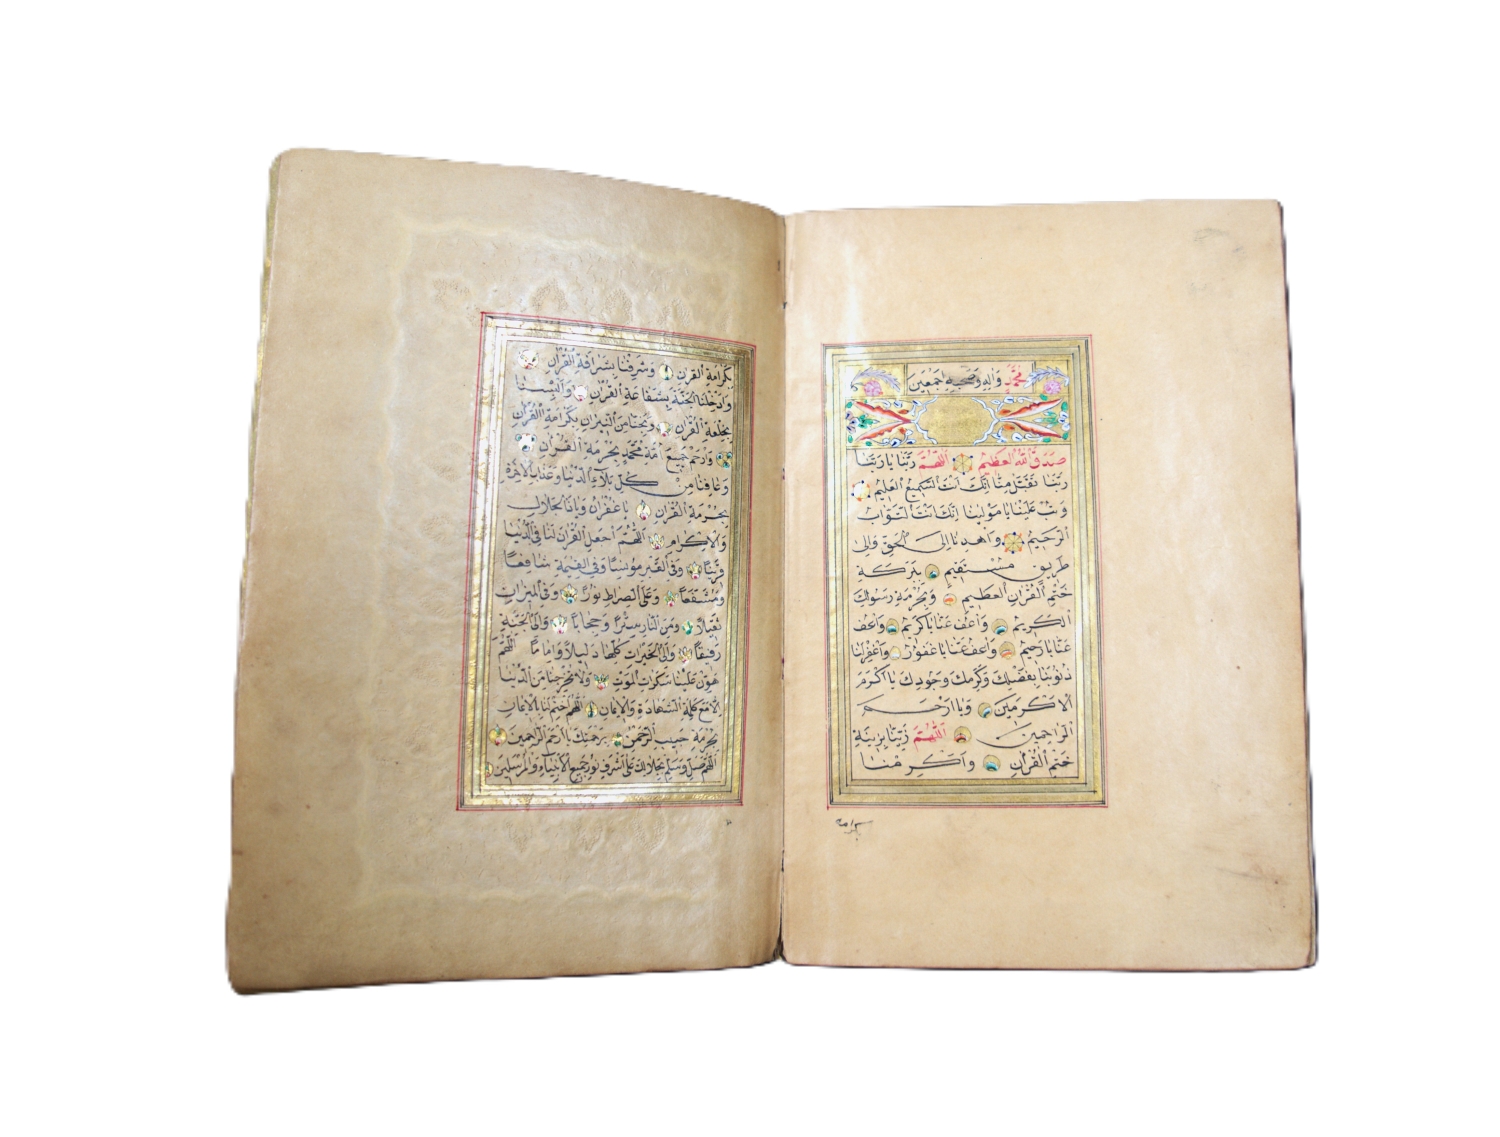 محمد واله وصحبه اجمعين
صدق الله العظيم اللهم ربنا يا ربنا
ربنا تقبل منا انك انت السميع العليم
وتب علينا يا مولينا انك انت التواب
الرحيم واهدنا الى الحق والى
طريق مستقيم ببركة
ختم القران العظيم وبحرمة رسولك
الكريم واعف عنا يا كريم واعف
عنا يا رحيم واعف عنا يا غفور واغفر لنا
ذنوبنا بفضلك وكرمك وجودك يا اكرم
الاكرمين ويا ارحم
الراحمين اللهم زينا بزينة
ختم القران واكرمنا
بكرامة القران وشرفنا بشرافة القران
وادخلنا الجنة بشفاعة القران والبسنا
بخلعة القران ونجنا من النيران بكرامة القران
وارحم جميع امة محمد بحرمة القران
وعافنا من كل بلاء الدنيا وعذاب الاخرة
بحرمة القران يا غفران ويا ذا الجلال
والاكرام اللهم اجعل القران لنا في الدنيا
قرينا وفي القبر مونسا وفي القيمة شافعا
ومشفعا وعلى الصراط نورا وفي الميزان
ومن النار سترا وحجابا والى الجنة
رفيقا والى الخيرات كلها دليلا واماما اللهم
هون علينا سكرات الموت ولا تخرجنا من الدنيا
الا مع كلمة الشهادة والايمان اللهم اختم لنا بالايمان
بحرمة حبيب الرحمن برحمتك يا ارحم الراحمين
اللهم صل وسلم بجلالك على اشرف نور جميع الانبياء والمرسلين